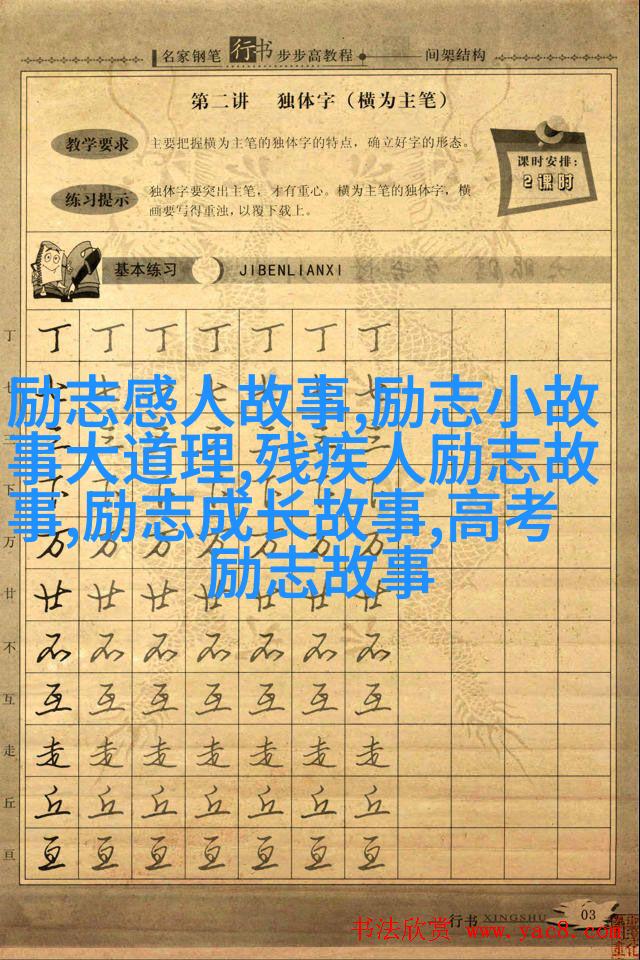 名家钢笔 行书 步步高教程 间架结构
第二讲 独体字（横为主笔）
教学要求
主要把握横为主笔的独体字的特点，确立好字的形态。
课时安排：
2课时
练习提示
独体字要突出主笔，才有重心。横为主笔的独体字，横
画要写得重浊，以覆下载上。
基本练习 JIBENLIANXI
丁 丁 丁 丁 丁 丁 丁 丁
七 七 七 七 七 七 七 七
三 三 三 三 三 三 三
下 下 下 下 下 下 下 下
万 万 万 万 万 万 万 万
廿 廿 廿 廿 廿 廿 廿 廿
不 不 不 不 不 不 不 不
互 互 互 互 互 互 互 互
走 走 走 走 走 走 走 走
丘 丘 丘 丘 丘 丘 丘 丘
亘 亘 亘 亘 亘 亘 亘 亘
励志感人故事,励志小故
事大道理,残疾人励志故
事,励志成长故事,高考
励志故事
行书 XINGSHU 03
书法欣赏 www.yac8.com